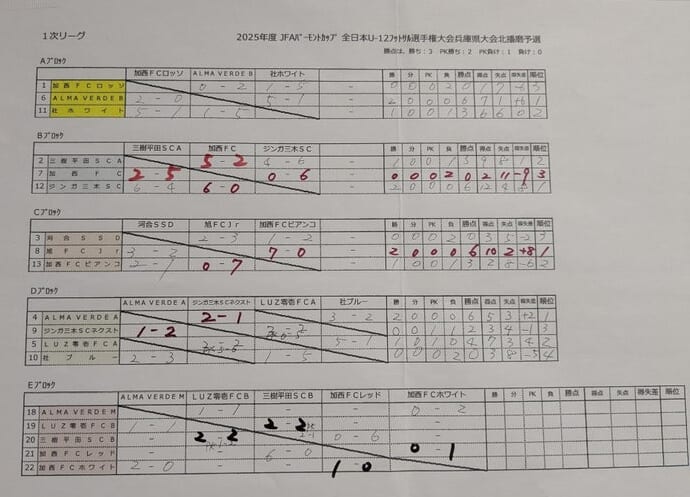 1次リーグ
2025年度 JFAバーモントカップ 全日本U-12フットサル選手権大会兵庫県大会北播磨予選
勝点は、勝ち：3　PK勝ち：2　PK負け：1　負け：0
Aブロック
加西FCロッソ ALMA VERDE B 社ホワイト 勝 分 PK 負 勝点 得点 失点 得失差 順位
1 加西FCロッソ 0 - 2 1 - 5 - 0 0 0 2 0 1 7 -6 3
6 ALMA VERDE B 2 - 0 5 - 1 - 2 0 0 0 6 7 1 +6 1
11 社ホワイト 5 - 1 1 - 5 - 1 0 0 1 3 6 6 0 2
Bブロック
三樹平田SCA 加西FC ジンガ三木SC 勝 分 PK 負 勝点 得点 失点 得失差 順位
2 三樹平田SCA 5 - 2 4 - 6 - 1 0 0 1 3 9 8 1 2
7 加西FC 2 - 5 0 - 6 - 0 0 0 2 0 2 11 -9 3
12 ジンガ三木SC 6 - 4 6 - 0 - 2 0 0 0 6 12 4 8 1
Cブロック
河合SSD 旭FCJr 加西FCビアンコ 勝 分 PK 負 勝点 得点 失点 得失差 順位
3 河合SSD 2 - 3 1 - 2 - 0 0 0 2 0 3 5 -2 3
8 旭FCJr 3 - 2 7 - 0 - 2 0 0 0 6 10 2 +8 1
13 加西FCビアンコ 2 - 1 0 - 7 - 1 0 0 1 3 2 8 -6 2
Dブロック
ALMA VERDE A ジンガ三木SCネクスト LUZ零壱FCA 社ブルー 勝 分 PK 負 勝点 得点 失点 得失差 順位
4 ALMA VERDE A 2 - 1 3 - 2 2 0 0 0 6 5 3 +2 1
9 ジンガ三木SCネクスト 1 - 2 2 - 2 0 0 1 1 2 3 4 -1 3
5 LUZ零壱FCA 2 - 2 5 - 1 1 0 1 0 4 7 3 4 2
10 社ブルー 2 - 3 1 - 5 0 0 0 2 0 3 8 -5 4
Eブロック
ALMA VERDE M LUZ零壱FCB 三樹平田SCB 加西FCレッド 加西FCホワイト 勝 分 PK 負 勝点 得点 失点 得失差 順位
18 ALMA VERDE M 1 - 1 - - 0 - 2
19 LUZ零壱FCB 1 - 1 2 - 2 - -
20 三樹平田SCB - 2 - 2 0 - 6 -
21 加西FCレッド - - 6 - 0 0 - 1
22 加西FCホワイト 2 - 0 - - 1 - 0